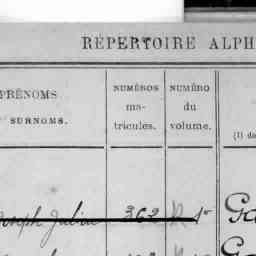 RÉPERTOIRE ALPH
PRÉNOMS
SURNOMS.
NUMÉROS
ma-
tricules.
NUMÉRO
du
volume.
(1) de
Joseph Julien 362